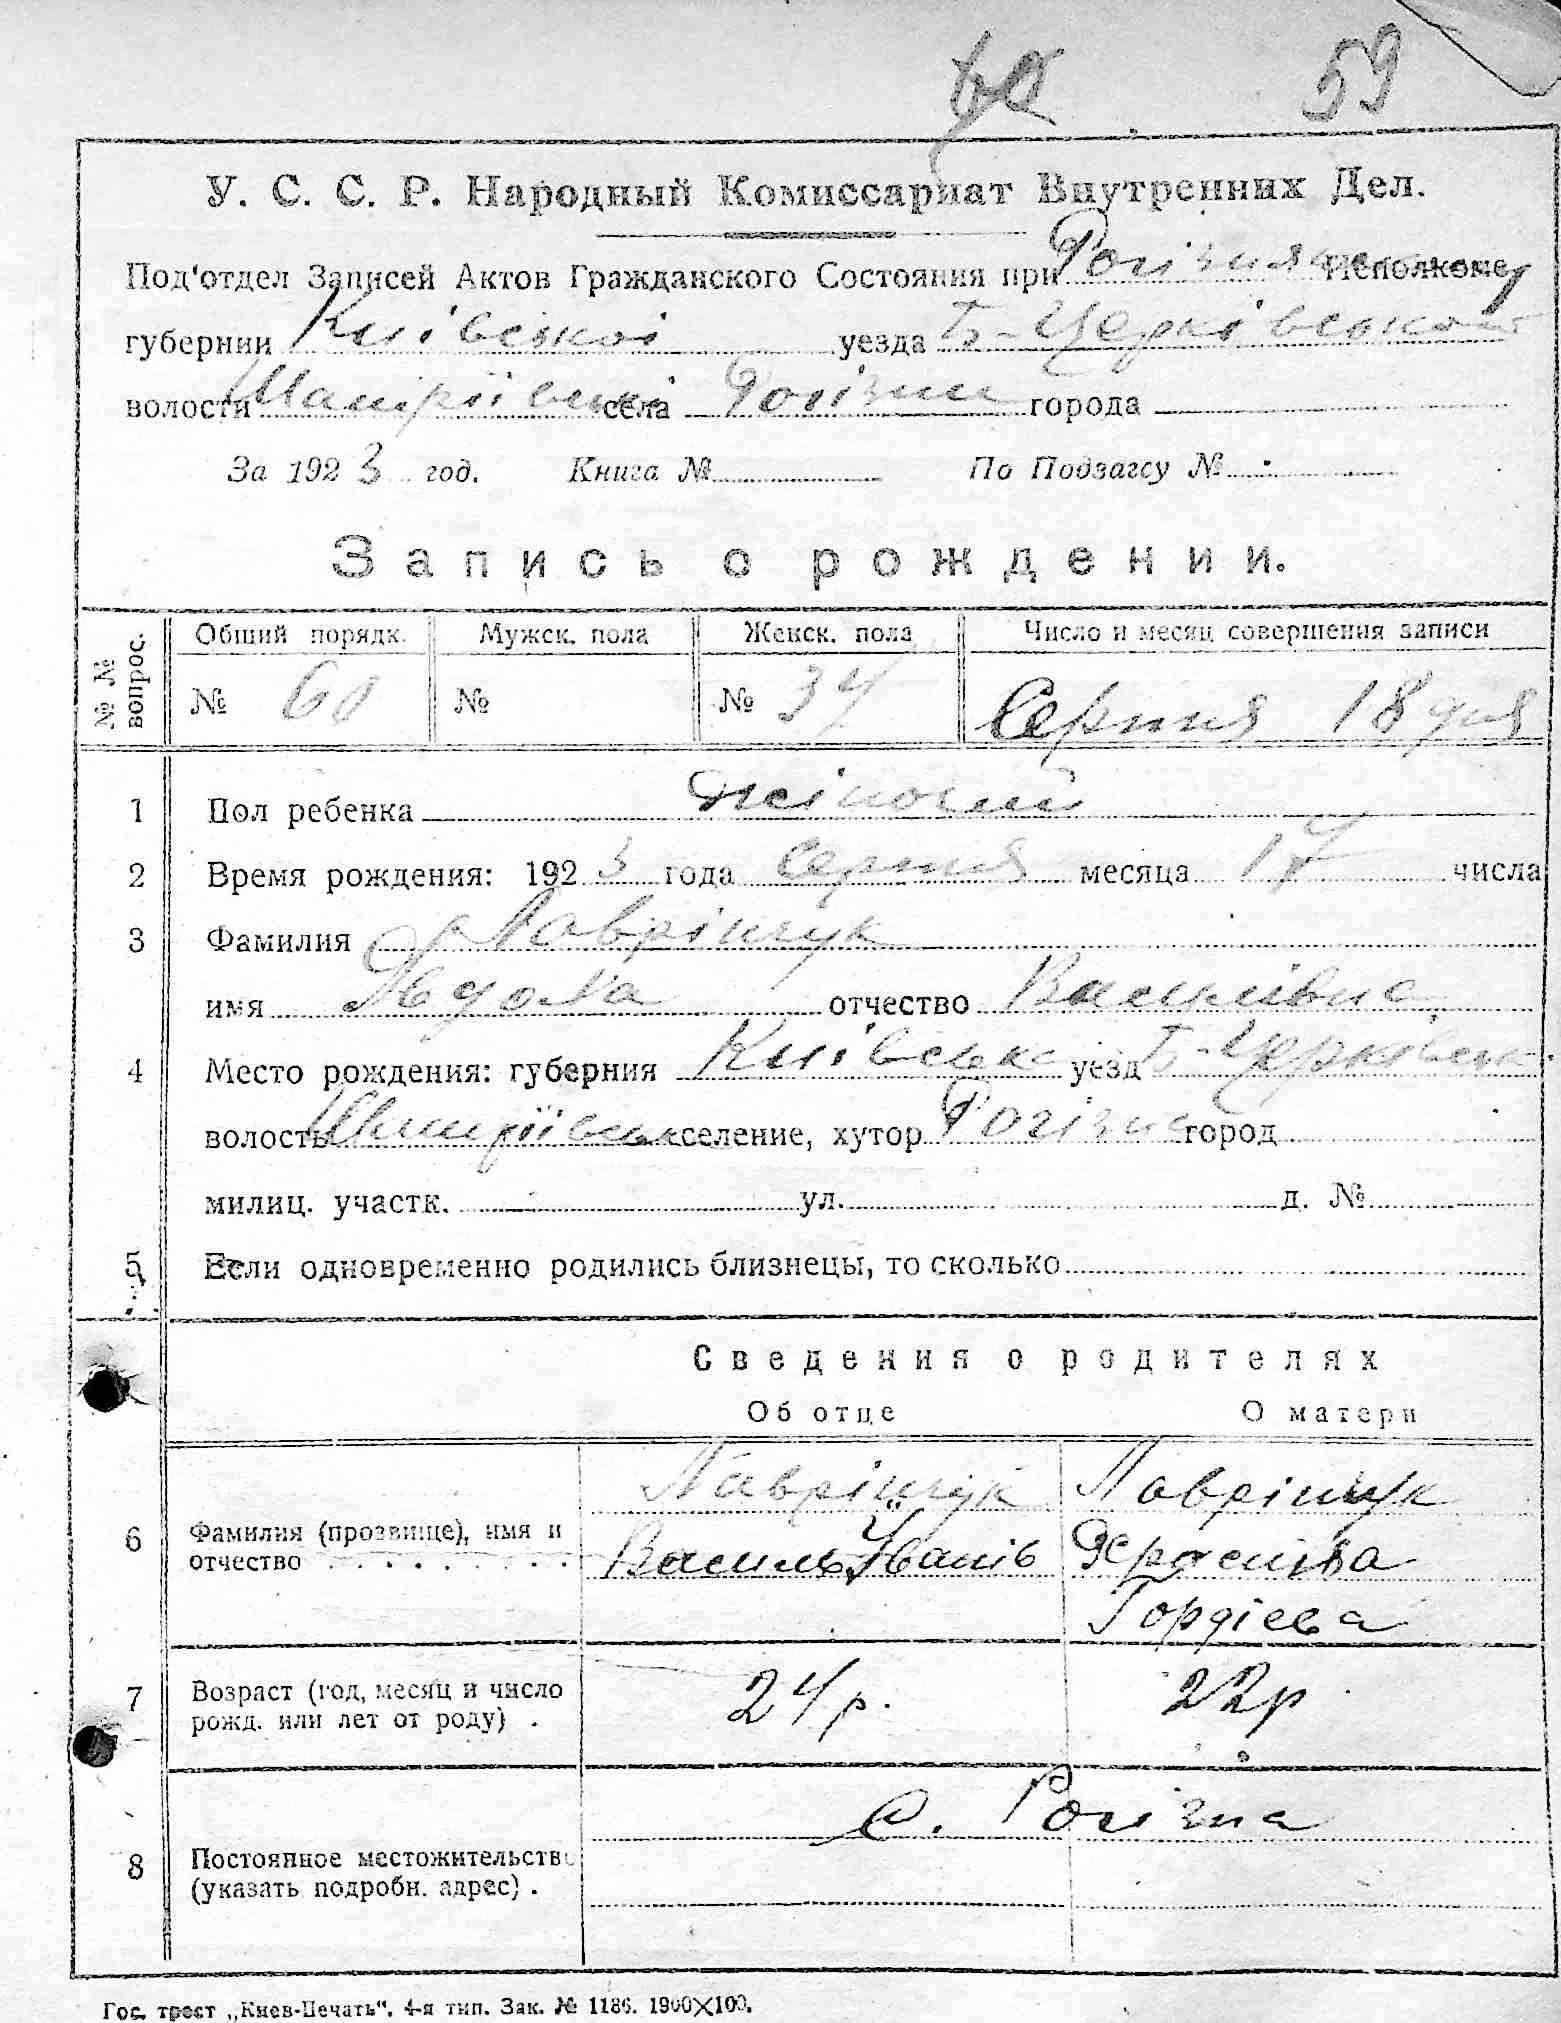 59
У. С. С. Р. Народный Комиссариат Внутренних Дел.
Под'отдел Записей Актов Гражданского Состояния при Исполкоме
губернии Київської уезда Б-Церківської
волости села Рогізни города
За 1923 год. Книга № По Подзагсу №
Запись о рождении.
№ № вопрос. Общий порядк. Мужск. пола Женск. пола Число и месяц совершения записи
№ 60 № № 34 Серпня 18 дня
1 Пол ребенка жіночий
2 Время рождения: 1923 года Серпня месяца 17 числа
3 Фамилия Лаврінчук
имя Явдоха отчество Василівна
4 Место рождения: губерния Київська уезд Б-Церківськ
волость селение, хутор Рогізна город
милиц. участк. ул. д. №
5 Если одновременно родились близнецы, то сколько
Сведения о родителях
Об отце О матери
Лаврінчук Лаврінчук
6 Фамилия (прозвище), имя и отчество Василь Іванів
Гордієва
7 Возраст (год, месяц и число рожд. или лет от роду) . 24 р. 22 р
С. Рогізна
8 Постоянное местожительство (указать подробн. адрес) .
Гос. трест „Киев-Печать". 4-я тип. Зак. № 1186. 1900×100.